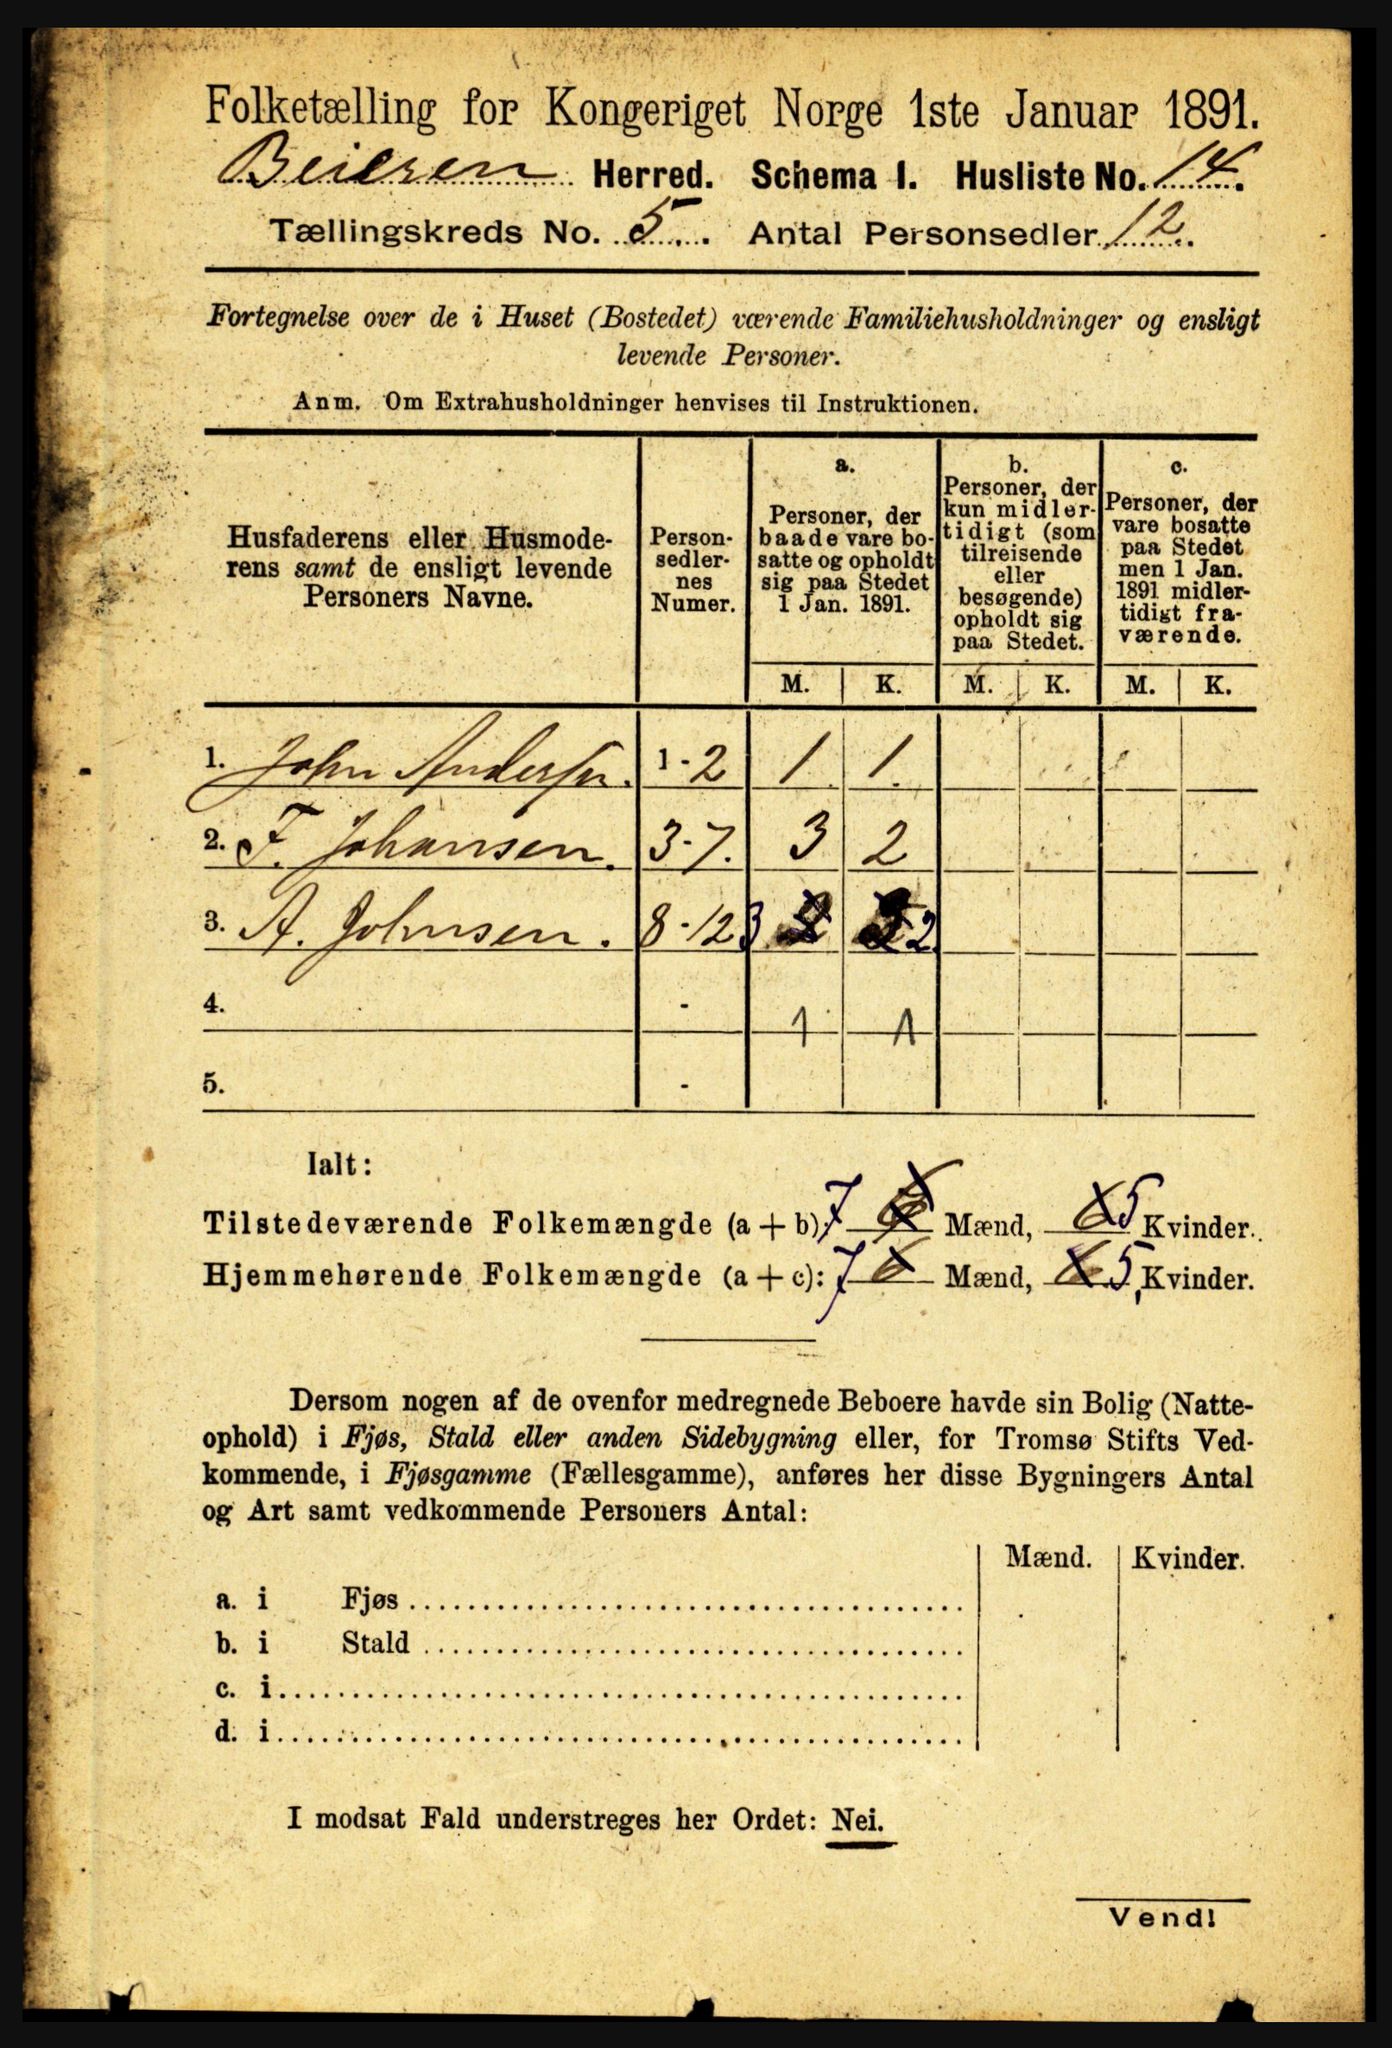 Folketælling for Kongeriget Norge 1ste Januar 1891.
Beieren Herred. Schema I. Husliste No. 14.
Tællingskreds No. 5. Antal Personsedler 12.
Fortegnelse over de i Huset (Bostedet) værende Familiehusholdninger og ensligt
levende Personer.
Anm. Om Extrahusholdninger henvises til Instruktionen.
Husfaderens eller Husmode-
rens samt de ensligt levende
Personers Navne.
Person-
sedler-
nes
Numer.
a.
Personer, der
baade vare bo-
satte og opholdt
sig paa Stedet
1 Jan. 1891.
b.
Personer, der
kun midler-
tidigt (som
tilreisende
eller
besøgende)
opholdt sig
paa Stedet.
c.
Personer, der
vare bosatte
paa Stedet
men 1 Jan.
1891 midler-
tidigt fra-
værende.
M. K. M. K. M. K.
1. John Andersen. 1-2 1 1.
2. F. Johansen. 3-7. 3 2
3. A. Johnsen. 8-12 3 2 3 2
4. - 1 1
5. -
Ialt:
Tilstedeværende Folkemængde (a + b): 7 6 Mænd, 6 5 Kvinder.
Hjemmehørende Folkemængde (a + c): 7 6 Mænd, 6 5 Kvinder.
Dersom nogen af de ovenfor medregnede Beboere havde sin Bolig (Natte-
ophold) i Fjøs, Stald eller anden Sidebygning eller, for Tromsø Stifts Ved-
kommende, i Fjøsgamme (Fællesgamme), anføres her disse Bygningers Antal
og Art samt vedkommende Personers Antal:
Mænd. Kvinder.
a. i Fjøs
b. i Stald
c. i
d. i
I modsat Fald understreges her Ordet: Nei.
Vend!